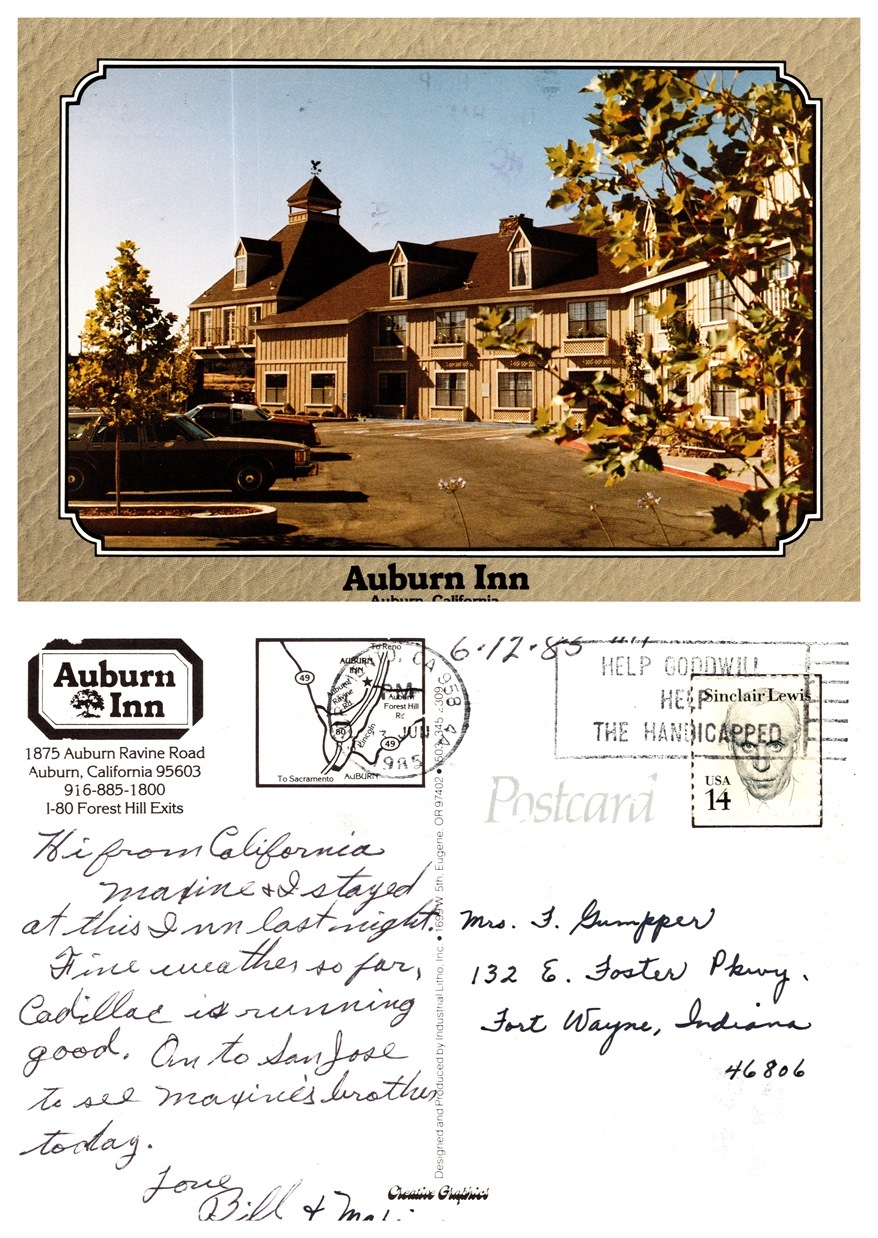 Auburn Inn
Auburn, California
Auburn
Inn
1875 Auburn Ravine Road
Auburn, California 95603
916-885-1800
I-80 Forest Hill Exits
To Reno
49
AUBURN
INN
Auburn
Ravine
Rd
Auburn
Forest Hill
Rd
80
Lincoln
49
To Sacramento
AUBURN
CA 958
PM
JUN
1985
6·12·85
HELP GOODWILL
HELP
THE HANDICAPPED
Sinclair Lewis
USA
14
Postcard
Hi from California
Maxine & I stayed
at this Inn last night.
Fine weather so far,
Cadillac is running
good. On to San Jose
to see Maxine's brother
today.
Love
Bill &
Designed and Produced by Industrial Litho, Inc. • 1699 W. 5th, Eugene, OR 97402 •
Creative Graphics
Mrs. F. Gumpper
132 E. Foster Pkwy.
Fort Wayne, Indiana
46806